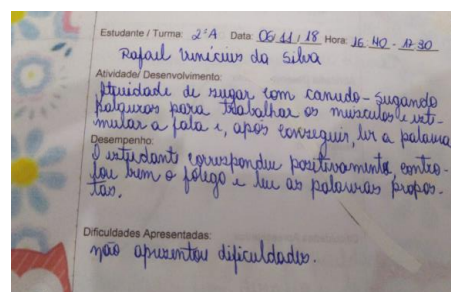 Estudante / Turma: 2ªA Data: 06/11/18 Hora: 16:40 - 17:30
Rafael Vinicius da Silva
Atividade/ Desenvolvimento:
Atividade de sugar com canudo - sugando
palavras para trabalhar os musculos e esti-
mular a fala e, após conseguir, ler a palavra
Desempenho:
O estudante correspondeu positivamente, contro-
lou bem o fôlego e leu as palavras propos-
tas.
Dificuldades Apresentadas:
não apresentou dificuldades.